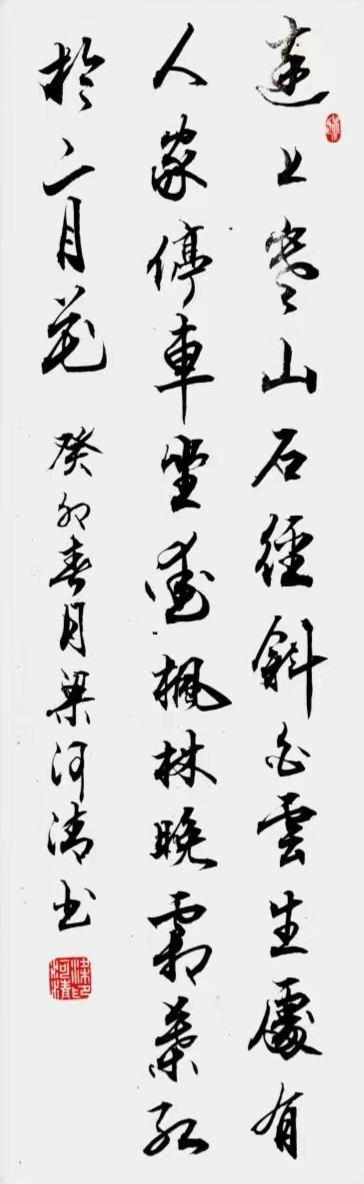 遠上寒山石徑斜白雲生處有
人家停車坐愛楓林晚霜葉紅
於二月花 癸卯春月梁河清书